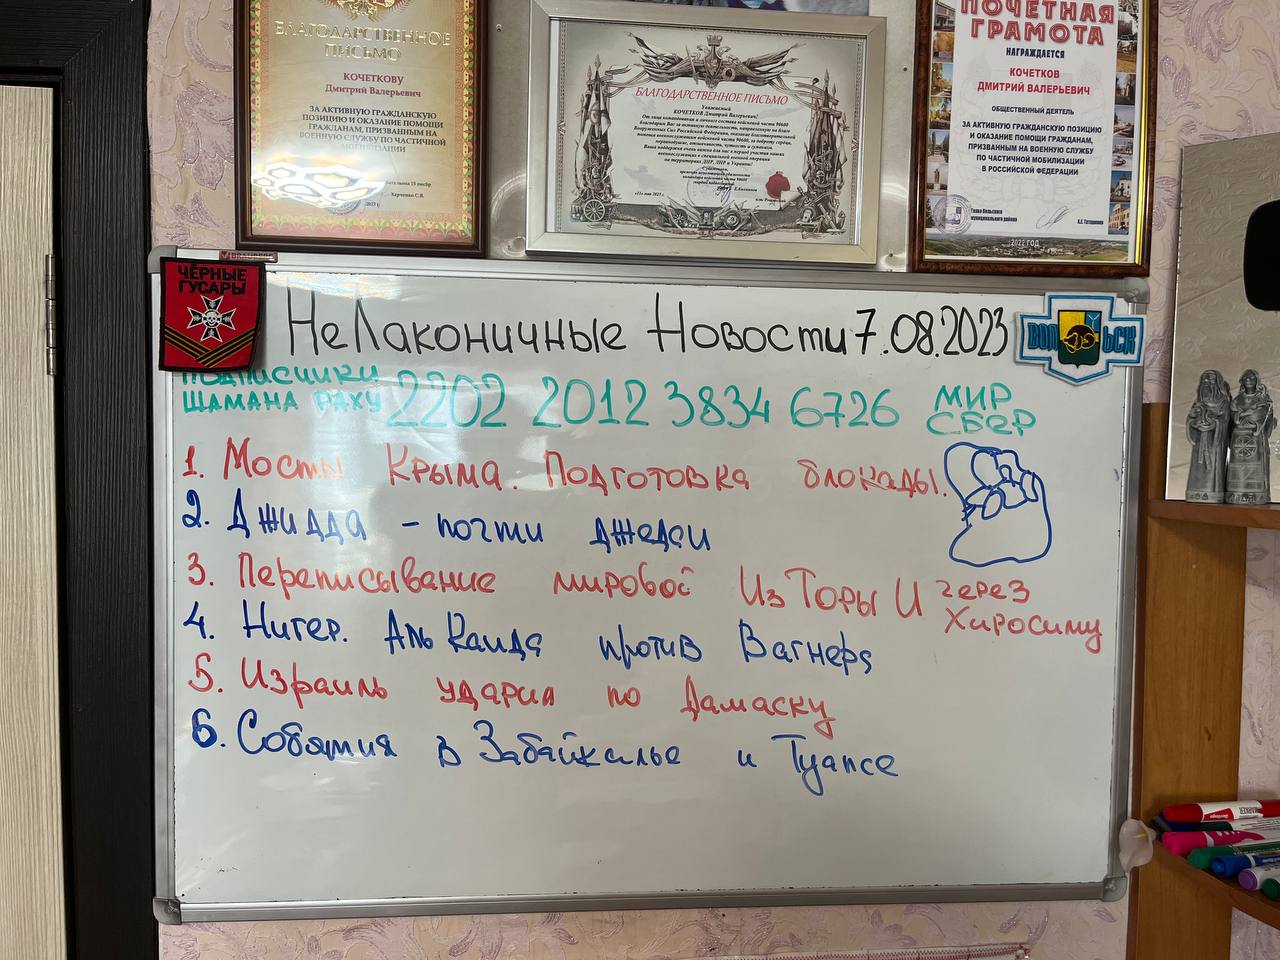 БЛАГОДАРСТВЕННОЕ
ПИСЬМО
КОЧЕТКОВУ
Дмитрий Валерьевич
ЗА АКТИВНУЮ ГРАЖДАНСКУЮ
ПОЗИЦИЮ И ОКАЗАНИЕ ПОМОЩИ
ГРАЖДАНАМ, ПРИЗВАННЫМ НА
ВОЕННУЮ СЛУЖБУ ПО ЧАСТИЧНОЙ
МОБИЛИЗАЦИИ
Харченко С.В.
2023 г
БЛАГОДАРСТВЕННОЕ ПИСЬМО
Уважаемый
КОЧЕТКОВ Дмитрий Валерьевич!
От лица командования и личного состава войсковой части 90600
ПОЧЕТНАЯ
ГРАМОТА
НАГРАЖДАЕТСЯ
КОЧЕТКОВ
ДМИТРИЙ ВАЛЕРЬЕВИЧ
ОБЩЕСТВЕННЫЙ ДЕЯТЕЛЬ
ЗА АКТИВНУЮ ГРАЖДАНСКУЮ ПОЗИЦИЮ
И ОКАЗАНИЕ ПОМОЩИ ГРАЖДАНАМ,
ПРИЗВАННЫМ НА ВОЕННУЮ СЛУЖБУ
ПО ЧАСТИЧНОЙ МОБИЛИЗАЦИИ
В РОССИЙСКОЙ ФЕДЕРАЦИИ
Глава Вольского
муниципального района
А.Е. Татаринов
2022 ГОД
BRAUBERG
ЧЁРНЫЕ
ГУСАРЫ
НеЛаконичные Новости 7.08.2023
ВОЛЬСК
ПОДПИСЧИКИ
ШАМАНА РАХУ 2202 2012 3834 6726 МИР
СБЕР
1. Мосты Крыма. Подготовка блокады.
2. Джидда - почти джедаи
3. Переписывание мировой Из Торы И через
Хиросиму
4. Нигер. Аль Каида против Вагнера
5. Израиль ударил по Дамаску
6. События в Забайкалье и Туапсе